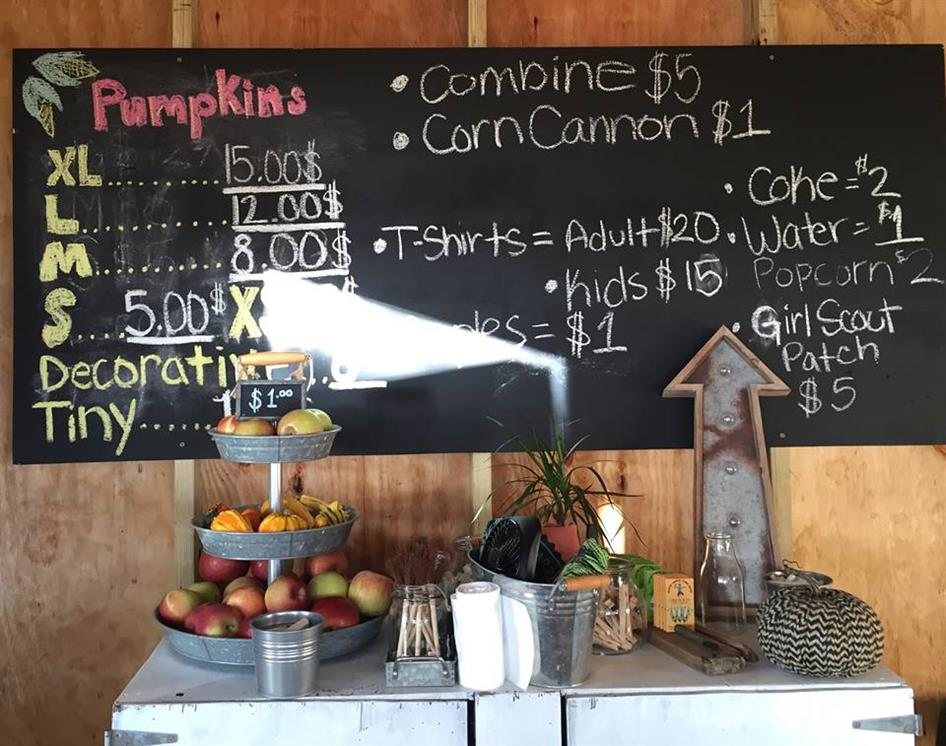 Pumpkins
XL..............15.00$
L..............12.00$
M..............8.00$
S....5.00$ X
Decorati
Tiny......
• Combine $5
• Corn Cannon $1
• T-Shirts = Adult $20
• Kids $15
= $1
• Coke = $2
• Water = $1
Popcorn $2
• Girl Scout
Patch
$5
$1.00